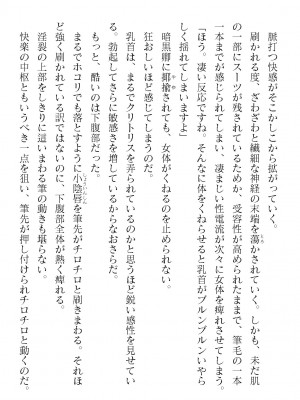 脈打つ快感がそこかしこから拡がっていく。
刷かれる度、ざわざわと繊細な神経の末端を蕩かされていく。しかも、未だ肌
の一部にスーツが残されているためか、受容性が高められたままで、筆毛の一本
一本までが感じられてしまい、凄まじい性電流が次々に女体を痺れさせてしまう。
「ほう。凄い反応ですね。そんなに体をくねらせると乳首がブルンブルンいやら
しく揺れてしまいますよ」
暗黒卿に揶揄されても、女体がくねるのを止められない。
狂おしいほど感じてしまうのだ。
乳首は、まるでクリトリスを弄られているのかと思うほど鋭い感性を見せてい
る。勃起してさらに敏感さを増しているからなおさらだ。
もっと、酷いのは下腹部だった。
まるでホコリでも落とすように小陰唇を筆先がチロチロと刷きまわる。それほ
ど強く刷かれている訳ではないのに、下腹部全体が熱く痺れる。
淫裂の上部をしきりに這いまわる筆の動きも堪らない。
快楽の中枢ともいうべき一点を狙い、筆先が押し付けられチロチロと動くのだ。